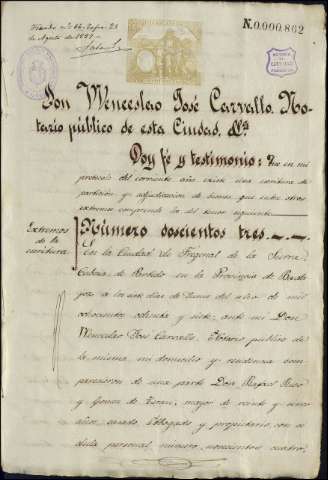 N.0.000.862
de Agosto de 1887
Don Wenceslao José Carvallo. No-
tario público de esta Ciudad. &ª
Doy fé y testimonio: Que en mi
protocolo del corriente año existe una escritura de
partición y adjudicación de bienes que entre otros
extremos comprende los del tenor siguiente
Extremos
de la
escritura
Número doscientos tres
En la Ciudad de Fregenal de la Sierra
Cabeza de Partido en la Provincia de Bada
joz a los días de Junio del año de mil
ochocientos ochenta y siete: ante mí Don
Wenceslao José Carvallo, Notario público de
la misma, mi domicilio y residencia com
parecieron de una parte Don
y Gomez de Teran; mayor de veinte y cinco
años, casado, Abogado y propietario con cé
dula personal número novecientos cuatro,